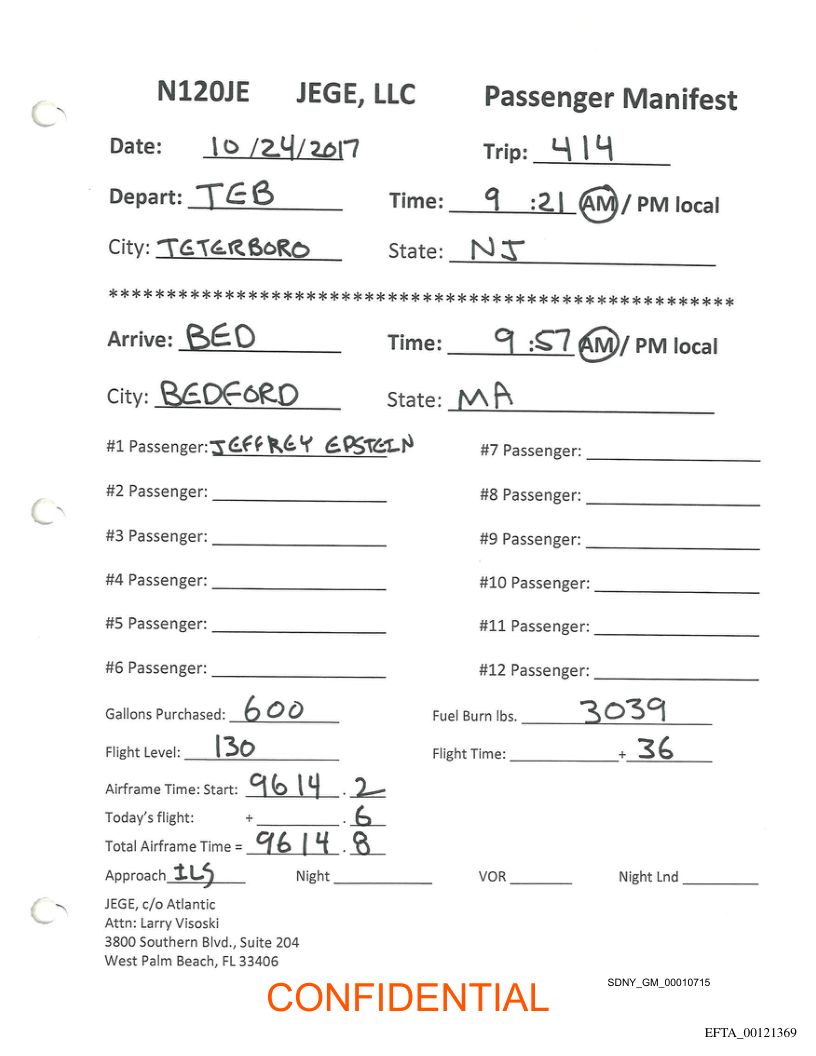 N120JE JEGE, LLC Passenger Manifest
Date: 10/24/2017 Trip: 414
Depart: TEB Time: 9:21 AM / PM local
City: TETERBORO State: NJ
******************************************************
Arrive: BED Time: 9:57 AM / PM local
City: BEDFORD State: MA
#1 Passenger: JEFFREY EPSTEIN #7 Passenger:
#2 Passenger: #8 Passenger:
#3 Passenger: #9 Passenger:
#4 Passenger: #10 Passenger:
#5 Passenger: #11 Passenger:
#6 Passenger: #12 Passenger:
Gallons Purchased: 600 Fuel Burn lbs. 3039
Flight Level: 130 Flight Time: + 36
Airframe Time: Start: 9614.2
Today's flight: + .6
Total Airframe Time = 9614.8
Approach ILS Night VOR Night Lnd
JEGE, c/o Atlantic
Attn: Larry Visoski
3800 Southern Blvd., Suite 204
West Palm Beach, FL 33406
SDNY_GM_00010715
CONFIDENTIAL
EFTA_00121369